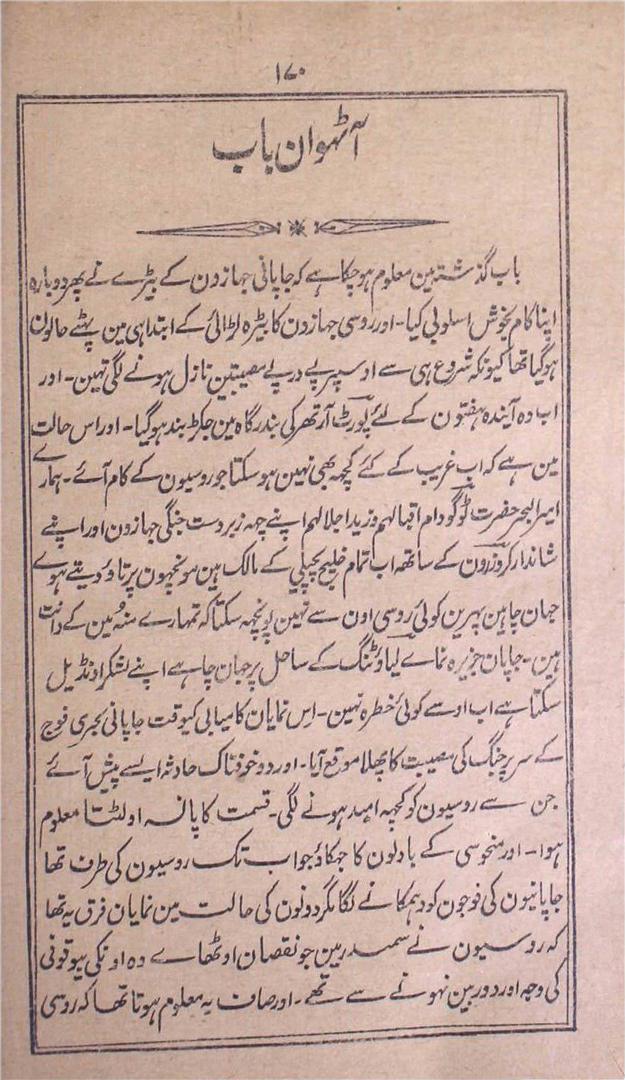 ۱۷۰
آٹہوان باب
باب گذشتہ مین معلوم ہوچکا ہے کہ جاپانی جہازون کے بیڑے نے پھر دوبارہ
اپنا کام بخوش اسلوبی کیا۔ اور روسی جہازون کا بیڑہ لڑائی کے ابتدا ہی مین پھٹے حالون
ہوگیا تھا کیونکہ شروع ہی سے اوسپر پے در پے مصیبتین نازل ہونے لگی تہین۔ اور
اب وہ آیندہ ہفتون کے لئے پورٹ آرتھر کی بندرگاہ مین جکڑ بند ہوگیا۔ اور اس حالت
مین ہے کہ اب غریب کے کئے کچہہ بھی نہین ہوسکتا جو روسیون کے کام آئے۔ ہمارے
امیر البحر حضرت ٹوگو دام اقبالہم وزید اجلالہم اپنے چہہ زبردست جنگی جہازون اور اپنے
شاندار کروزرون کے ساتھہ اب تمام خلیج پچیلی کے مالک ہین مونچہون پر تاؤ دیتے ہوے
جہان چاہین پہرین کوئی روسی اون سے نہین پونچہہ سکتا کہ تمہارے منہ مین کے دانت
ہین۔ جاپان جزیرہ نماے لیاوٹنگ کے ساحل پر جہان چاہے اپنے لشکر اونڈیل
سکتا ہے اب اوسے کوئی خطرہ نہین۔ اس نمایان کامیابی کیوقت جاپانی بحری فوج
کے سر پر جنگ کی مصیبت کا پہلا موقع آیا۔ اور دو خوفناک حادثہ ایسے پیش آئے
جن سے روسیون کو کچہہ امید ہونے لگی۔ قسمت کا پانسہ اولٹتا معلوم
ہوا۔ اور منحوسی کے بادلون کا جہکاؤ جو اب تک روسیون کی طرف تھا
جاپانیون کی فوجون کو دہمکانے لگا مگر دونون کی حالت مین نمایان فرق یہ تھا
کہ روسیون نے سمندر مین جو نقصان اوٹھاے وہ اونکی بیوقوفی
کی وجہ اور دوربین نہونے سے تھے۔ اور صاف یہ معلوم ہوتا تھا کہ روسی